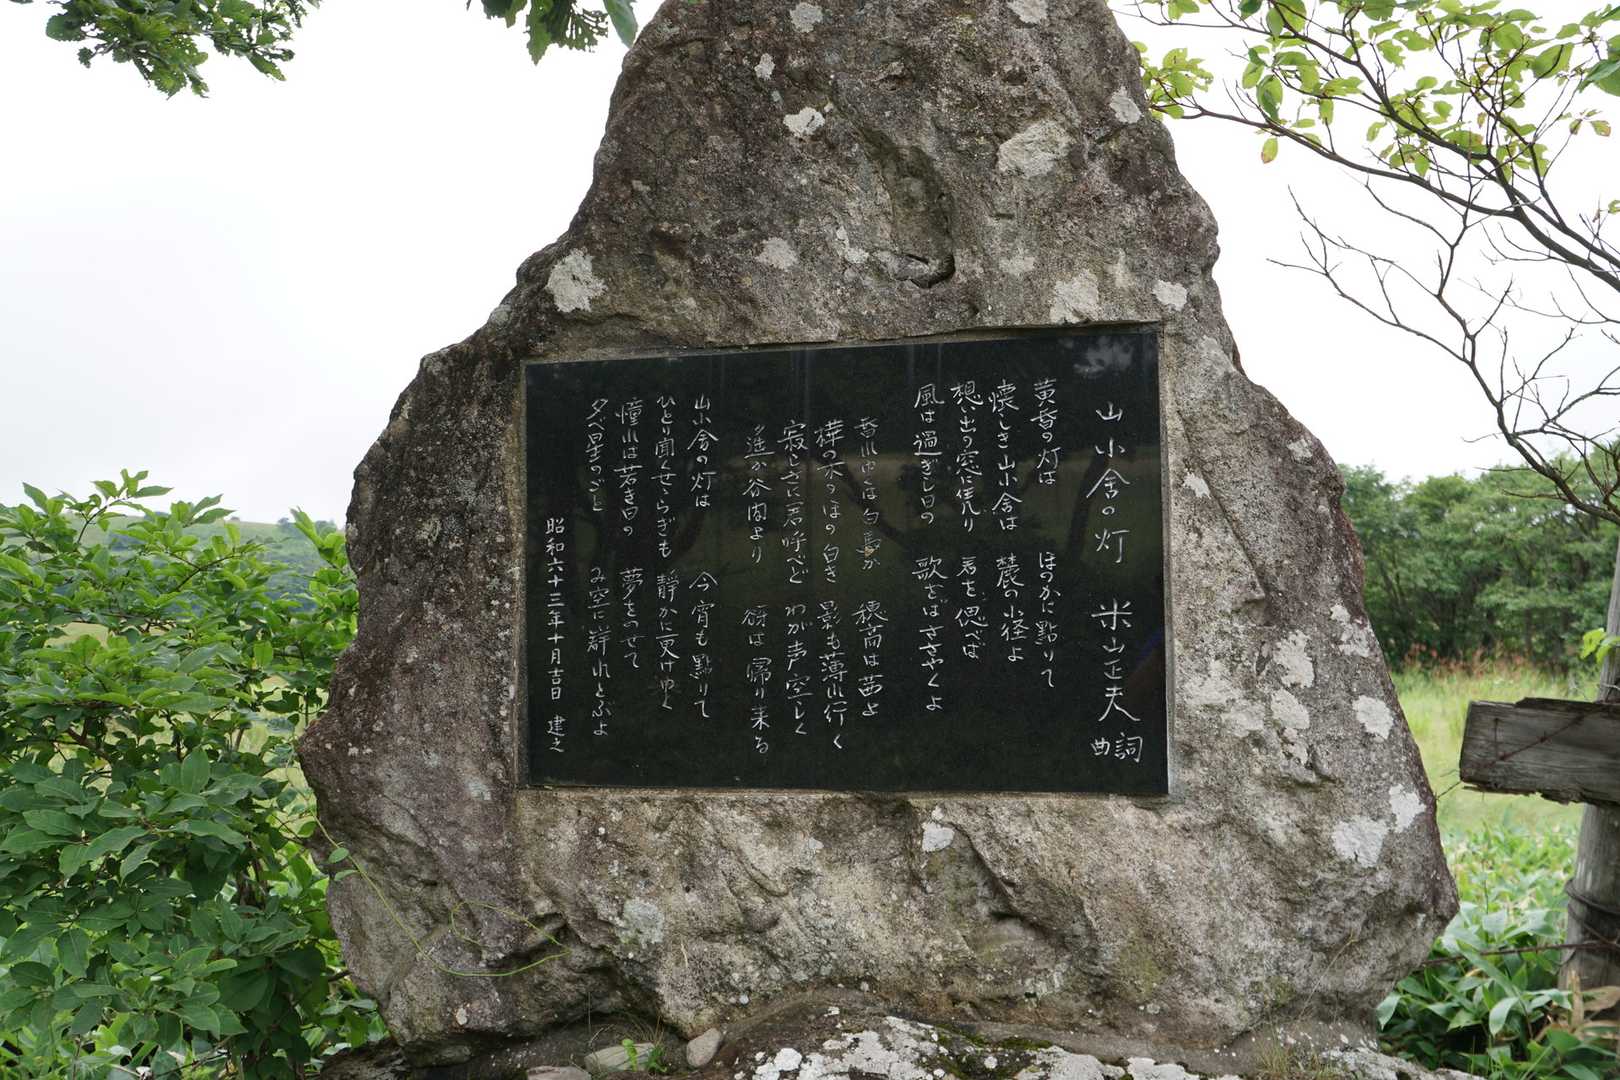 山小舎の灯 米山正夫 詞曲
黄昏の灯は ほのかに點りて
懐しき山小舎は 麓の小径よ
想い出の窓に凭り 君を偲べば
風は過ぎし日の 歌をばささやくよ
暮れ中くは白馬か 穂高は茜よ
樺の木のほの白き 影も薄れ行く
寂しさに君呼べど わが声空しく
遥か谷間より 谺は帰り来る
山小舎の灯は 今宵も點りて
ひとり聞くせゝらぎも 静かに更けゆく
憧れは若き日の 夢をのせて
夕べ星のごと み空に群れとぶよ
昭和六十三年十月吉日 建之